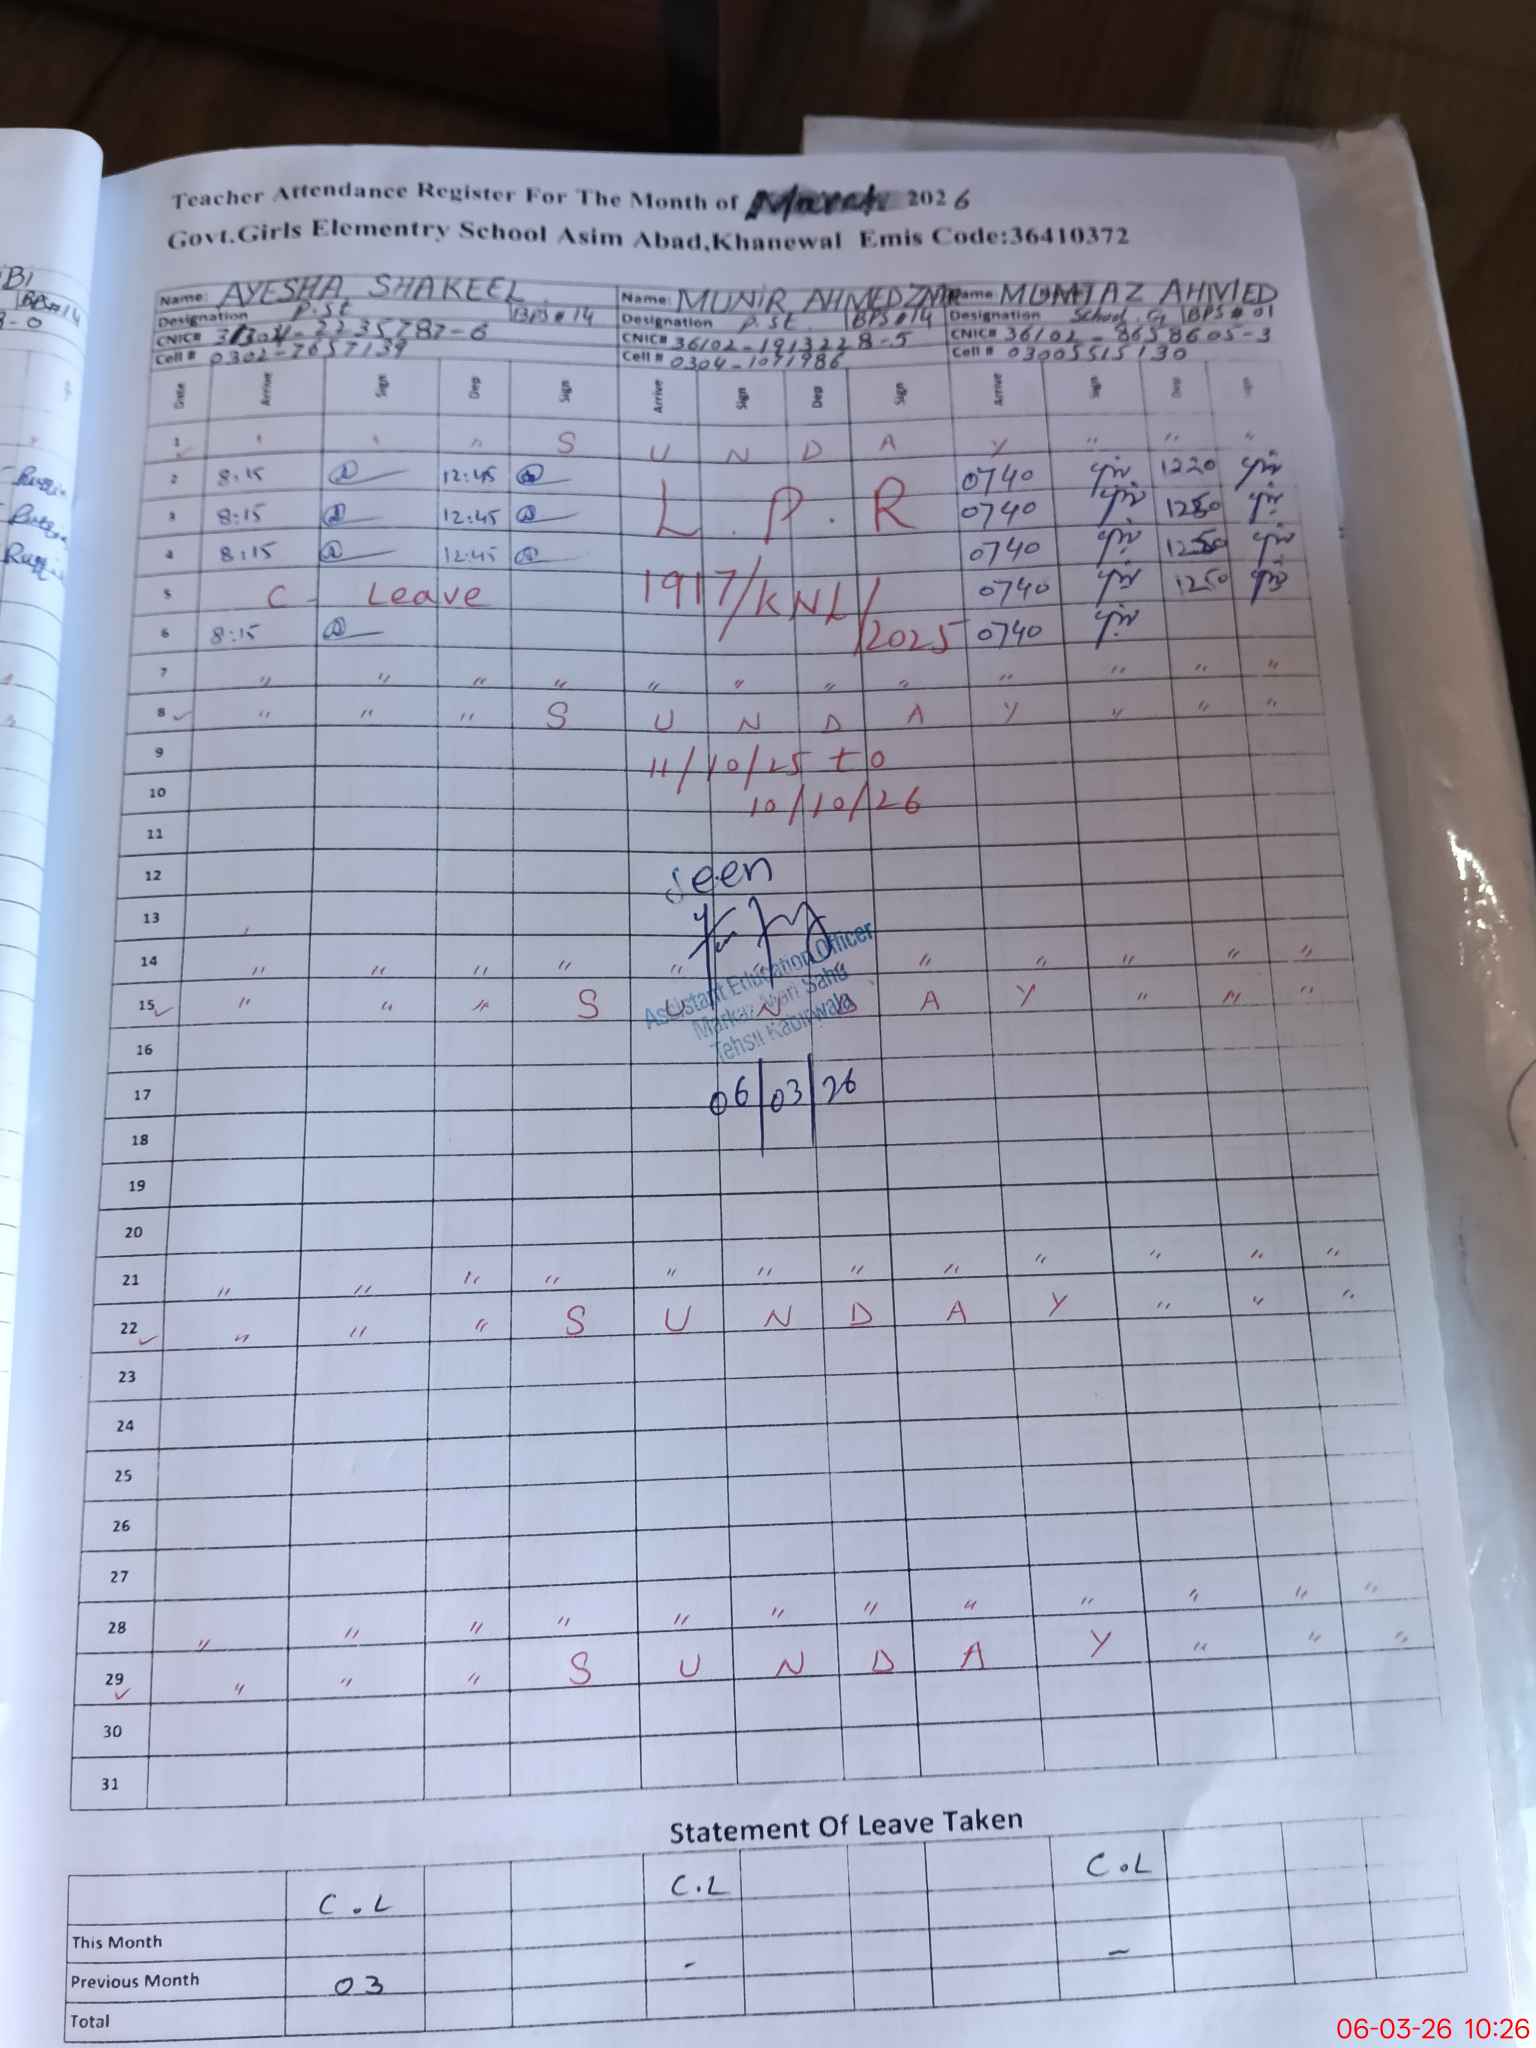 Teacher Attendance Register For The Month of March 2026
Govt.Girls Elementry School Asim Abad,Khanewal Emis Code:36410372
BI
BPS#14
Name: AYESHA SHAKEEL Name: MUNIR AHMED Name: MUMTAZ AHMED
Designation P.St BPS#14 Designation P.St BPS#14 Designation School BPS#01
CNIC# -2235787-6 CNIC# 36102-1913228-5 CNIC# 36102-8658605-3
Cell # 0302-7657139 Cell # 0304-1071986 Cell # 03005515130
Date Arrive Sign Dep Sign Arrive Sign Dep Sign Arrive Sign Dep
1 " " " S U N D A Y " " "
2 8:15 12:45 L.P.R 0740 1220
3 8:15 12:45 0740
4 8:15 12:45 0740
5 C- Leave 1917/KNL/ 0740 1250
6 8:15 2025 0740
7 " " " " " " " " " " " "
8 " " " S U N D A Y " " "
9 11/10/25 to
10 10/10/26
11
12 Seen
13
14 " " " " " " " " " " "
Assistant Education Officer
15 " " " S U N D A Y " " "
Tehsil Kabirwala
16
17 06/03/26
18
19
20
21 " " " " " " " " " " " "
22 " " " S U N D A Y " " "
23
24
25
26
27
28 " " " " " " " " " " " "
29 " " " S U N D A Y " " "
30
31
Statement Of Leave Taken
C.L C.L C.L
This Month
Previous Month 03 - -
Total
06-03-26 10:26